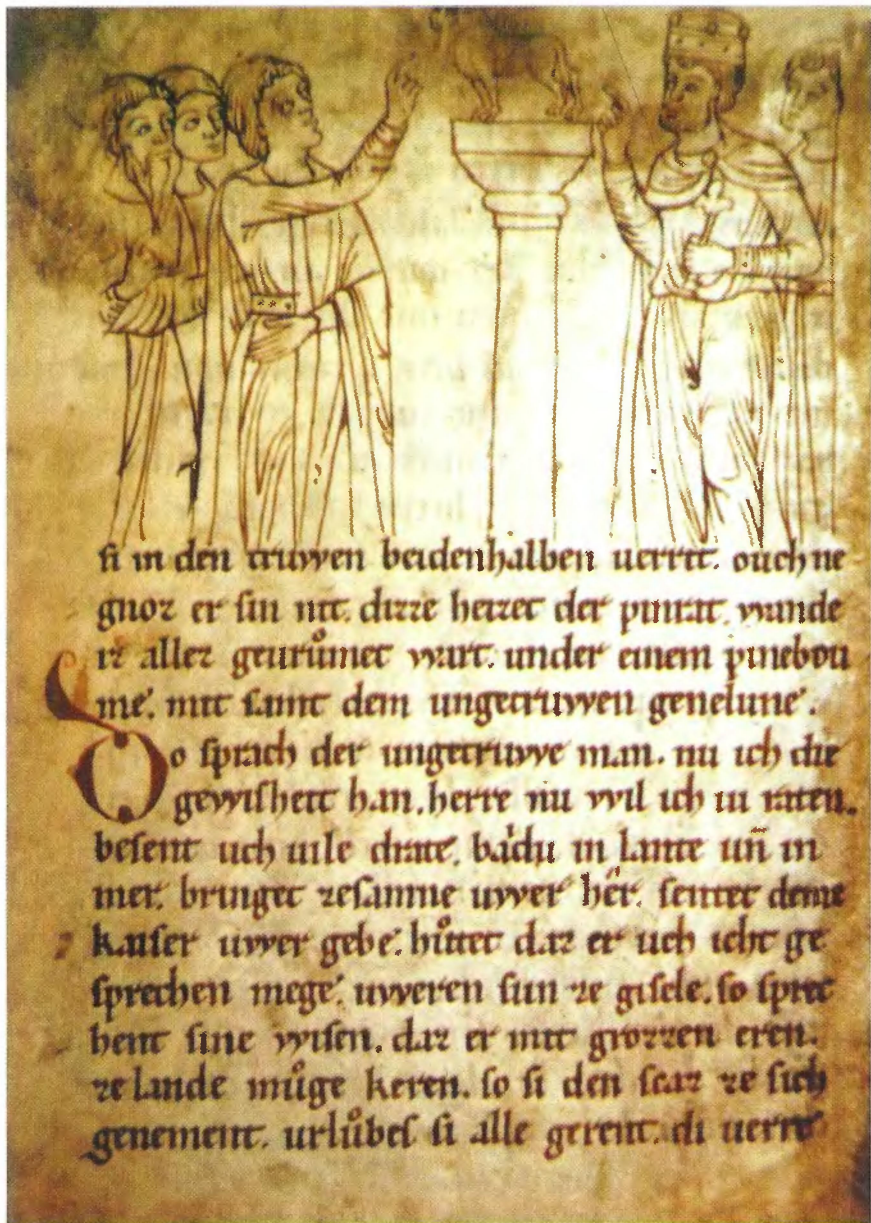 si in den truwen beidenhalben uerrit. ouch ne
gnoz er sin nit. dizze heizet der pinrat. wande
iz allez geurůmet wart. under einem pinebou
me. mit samt dem ungetruwen genelune.
So sprach der ungetruwe man. nu ich die
gewisheit han. herre nu wil ich iu raten.
besent uch uile drate. bædu in lante uñ in
mer. bringet zesamne uwer her. sentet deme
kaiser uwer gebe. bůtet daz er uch icht ge
sprechen mege. uweren sun ze gisele. so spre
chent sine wisen. daz er mit grozzen eren.
ze lande můge keren. so si den scaz ze sich
genement. urlůbes si alle gerent. di uerre